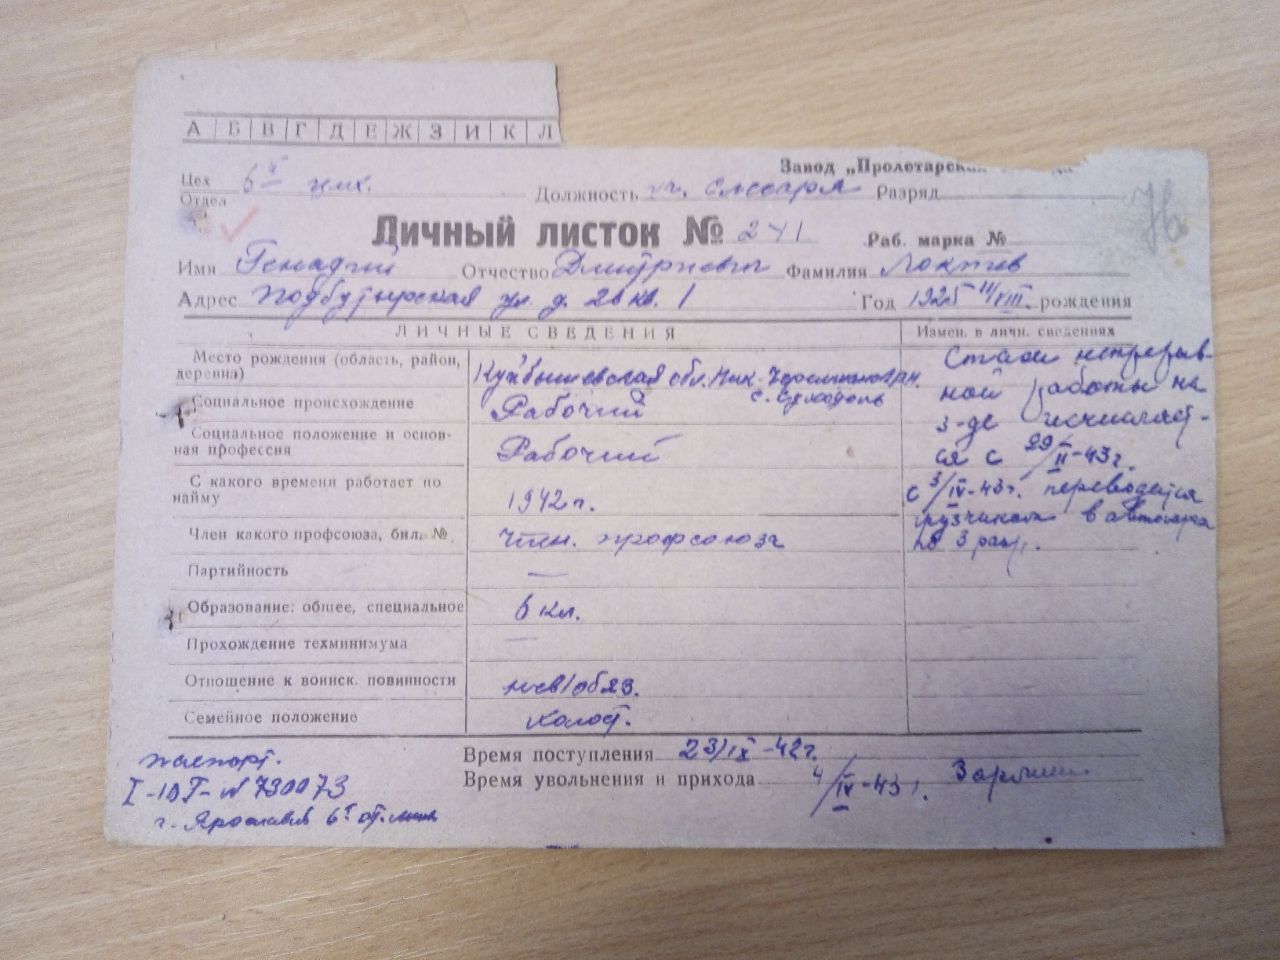 А Б В Г Д Е Ж З И К Л
Завод „Пролетарская
Цех 6й мех. Должность уч. слесаря Разряд
Отдел
Личный листок № 241 Раб. марка №
Имя Генадий Отчество Дмитриевич Фамилия Локтев
Адрес Подбутырская ул. д. 26 кв. 1 Год 1925 11/VIII. рождения
ЛИЧНЫЕ СВЕДЕНИЯ Измен. в личн. сведениях
Место рождения (область, район, деревня) Куйбышевская обл. Ник.
с. Суходоль
Социальное происхождение Рабочий
Социальное положение и основ-
ная профессия Рабочий
С какого времени работает по
найму 1942 г.
Член какого профсоюза, бил. № Член. профсоюза
Партийность —
Образование: общее, специальное 6 кл.
Прохождение техминимума —
Отношение к воинск. повинности нев/обяз.
Семейное положение холост.
Стаж непрерыв-
ной работы на
з-де исчисляет-
ся с 29/II-43 г.
с 3/IV-43 г. переводится
грузчиком в автогараж
по 3 разр.
Время поступления 23/IX-42 г.
Время увольнения и прихода 4/IV-43 г.
паспорт.
I-ЮГ-№ 730073
г. Ярославль 6е от. мил.